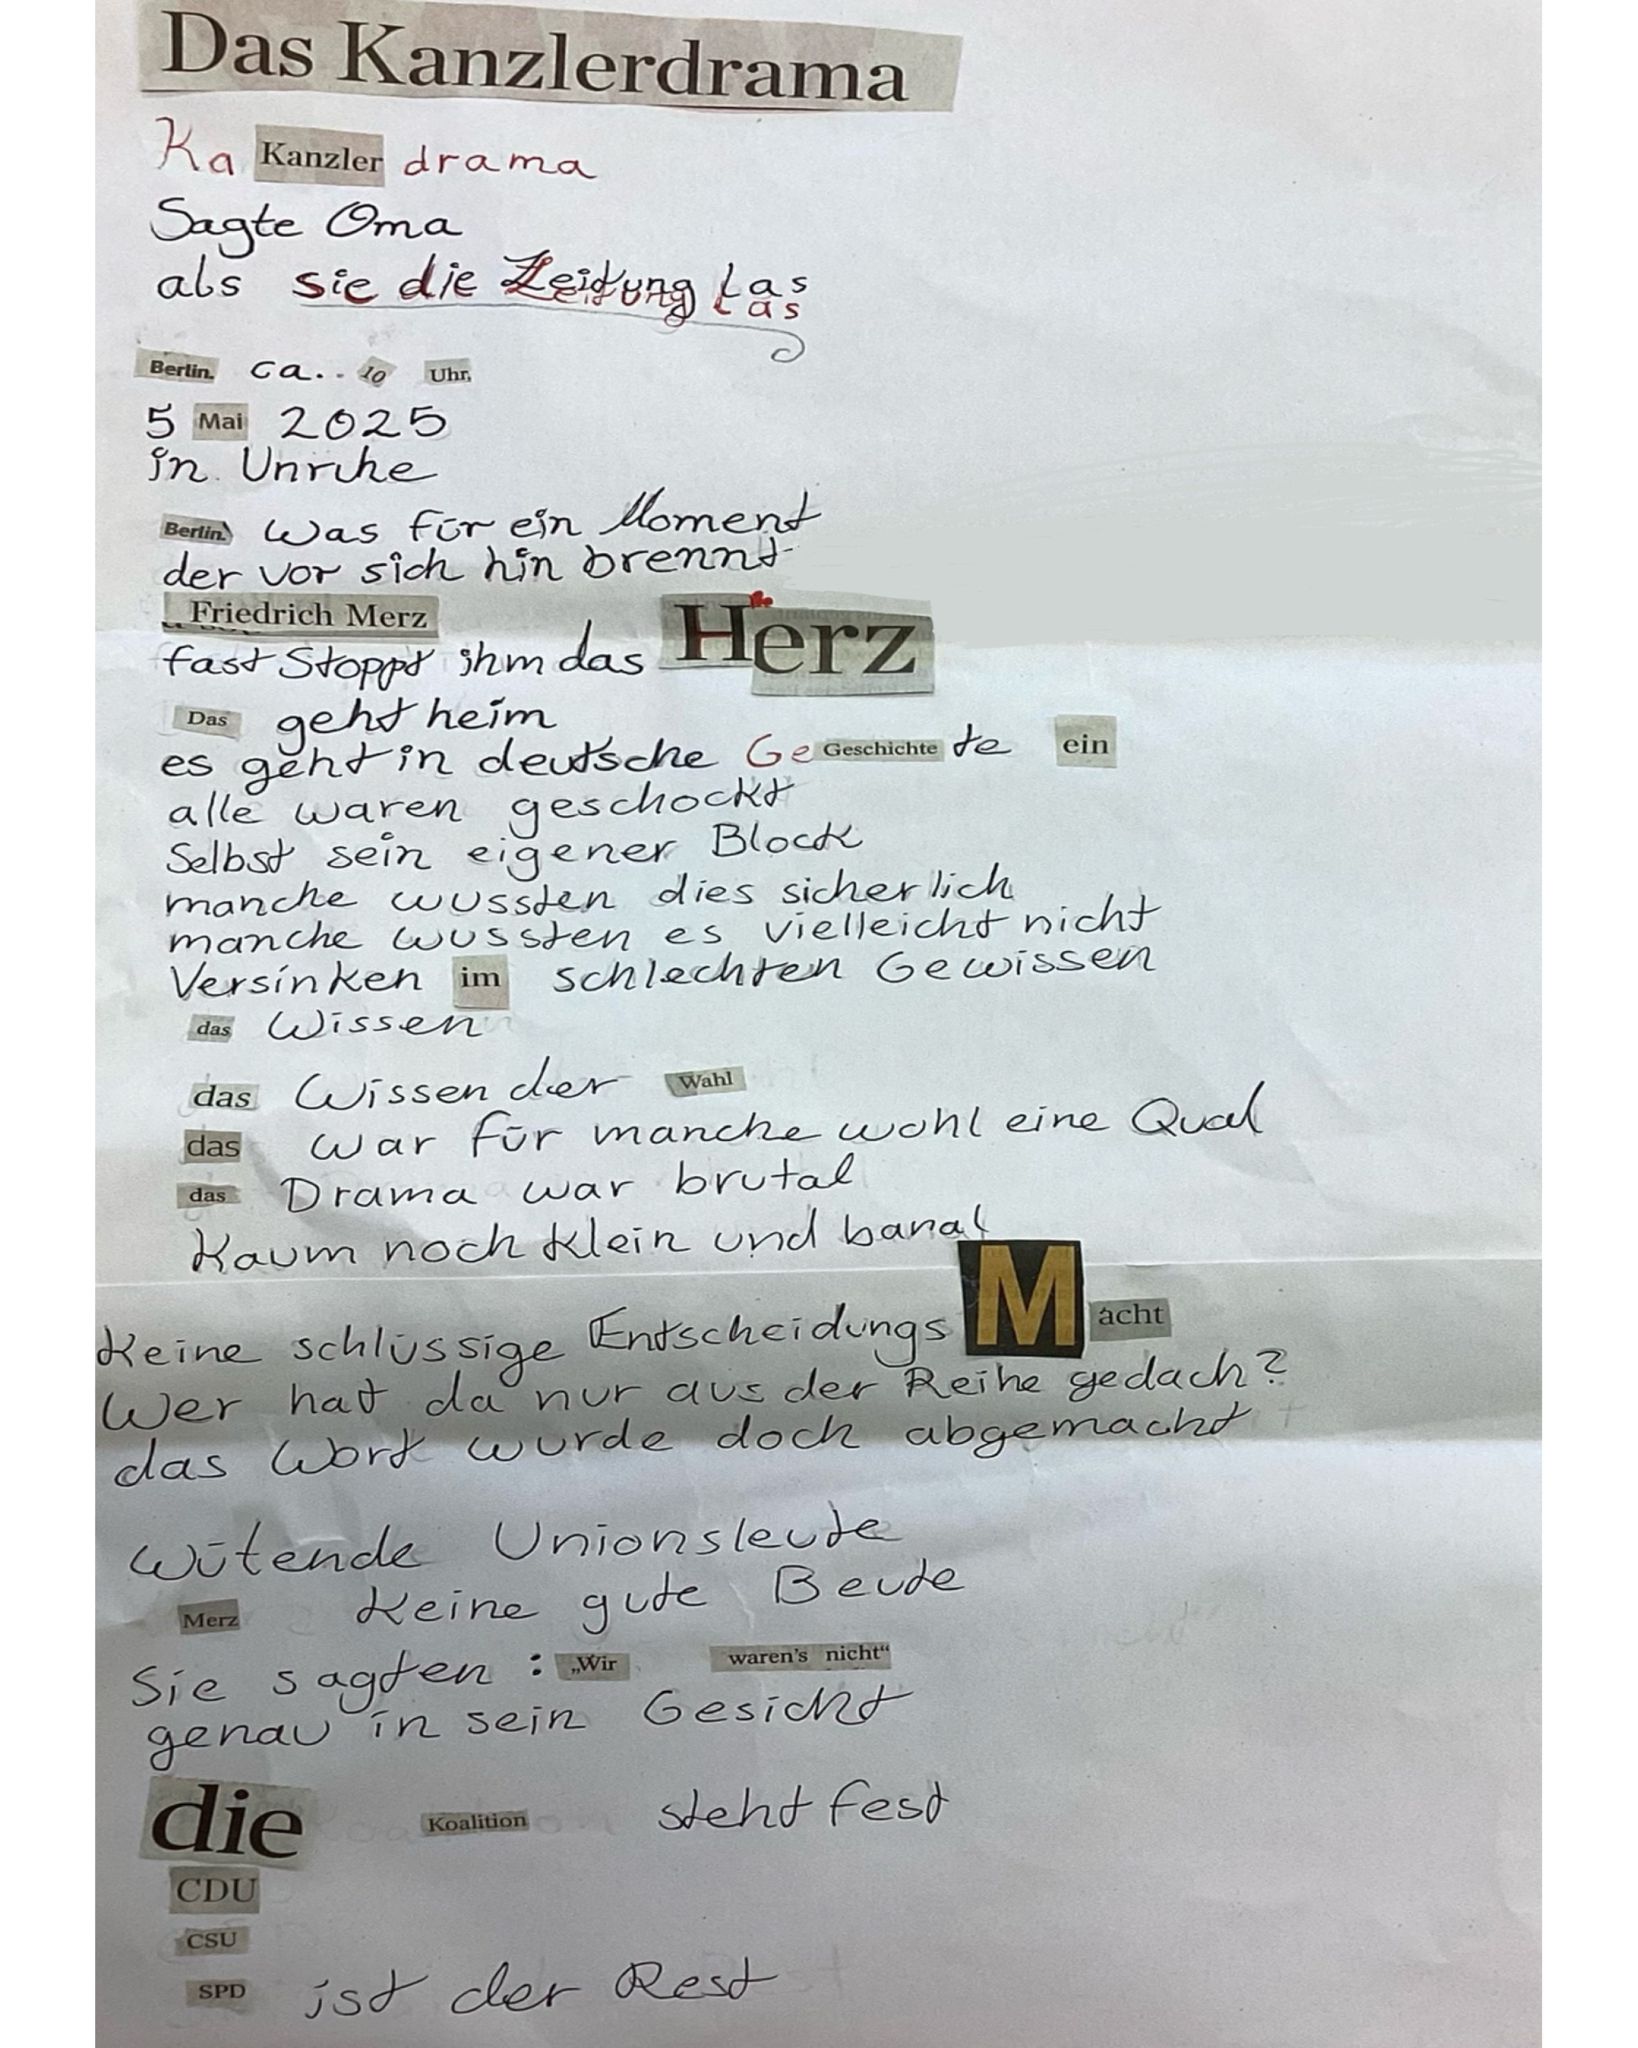 Das Kanzlerdrama
Ka Kanzler drama
Sagte Oma
als sie die Zeitung las
Berlin. ca... 10 Uhr,
5 Mai 2025
in Unruhe
Berlin. Was für ein Moment
der vor sich hin brennt
Friedrich Merz
fast Stoppt ihm das Herz
Das geht heim
es geht in deutsche Ge Geschichte te ein
alle waren geschockt
Selbst sein eigener Block
manche wussten dies sicherlich
manche wussten es vielleicht nicht
Versinken im schlechten Gewissen
das Wissen
das Wissen der Wahl
das war für manche wohl eine Qual
das Drama war brutal
Kaum noch klein und banal
Keine schlüssige Entscheidungs Macht
Wer hat da nur aus der Reihe gedach?
das Wort wurde doch abgemacht
Wütende Unionsleute
Merz Keine gute Beute
Sie sagten: „Wir waren's nicht“
genau in sein Gesicht
die Koalition steht fest
CDU
CSU
SPD ist der Rest